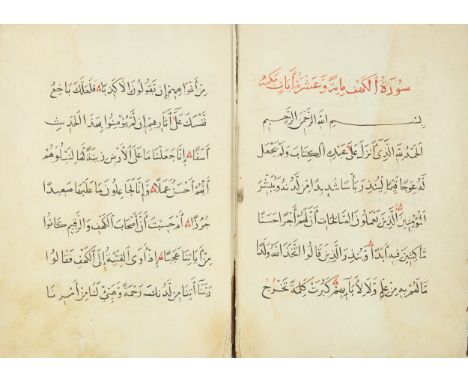 سورة الكهف مائة وعشرة آيات مكية
بسم الله الرحمن الرحيم
الحمد لله الذي أنزل على عبده الكتاب ولم يجعل
له عوجا قيما لينذر بأسا شديدا من لدنه ويبشر
المؤمنين الذين يعملون الصالحات أن لهم أجرا حسنا
ماكثين فيه أبدا وينذر الذين قالوا اتخذ الله ولدا
ما لهم به من علم ولا لآبائهم كبرت كلمة تخرج
من أفواههم إن يقولون إلا كذبا فلعلك باخع
نفسك على آثارهم إن لم يؤمنوا بهذا الحديث
أسفا إنا جعلنا ما على الأرض زينة لها لنبلوهم
أيهم أحسن عملا وإنا لجاعلون ما عليها صعيدا
جرزا أم حسبت أن أصحاب الكهف والرقيم كانوا
من آياتنا عجبا إذ أوى الفتية إلى الكهف فقالوا
ربنا آتنا من لدنك رحمة وهيئ لنا من أمرنا